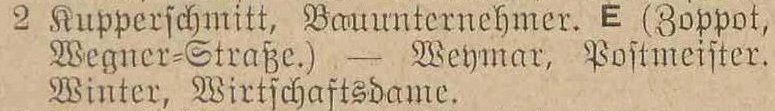 2 Kupperschmitt, Bauunternehmer. E (Zoppot,
Wegner-Straße.) — Weymar, Postmeister.
Winter, Wirtschaftsdame.